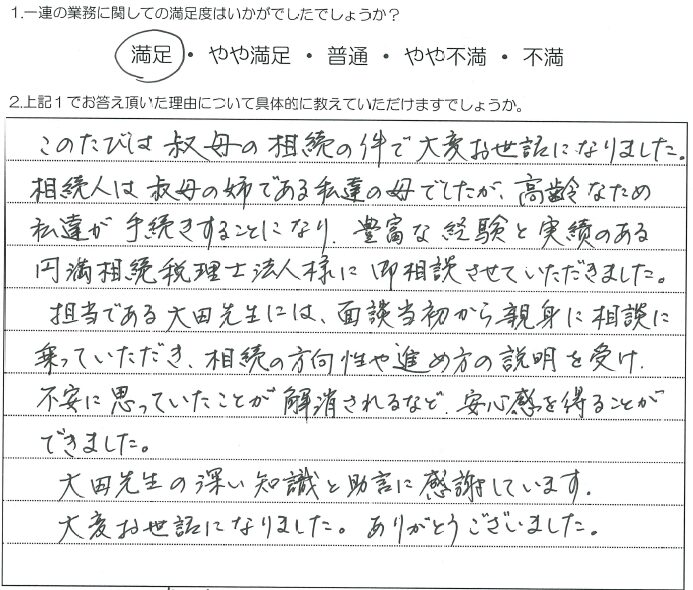 1.一連の業務に関しての満足度はいかがでしたでしょうか？
満足・やや満足・普通・やや不満・不満
2.上記１でお答え頂いた理由について具体的に教えていただけますでしょうか。
このたびは叔母の相続の件で大変お世話になりました。
相続人は叔母の姉である私達の母でしたが、高齢なため
私達が手続きすることになり、豊富な経験と実績のある
円満相続税理士法人様に御相談させていただきました。
担当である大田先生には、面談当初から親身に相談に
乗っていただき、相続の方向性や進め方の説明を受け、
不安に思っていたことが解消されるなど、安心感を得ることが
できました。
大田先生の深い知識と助言に感謝しています。
大変お世話になりました。ありがとうございました。